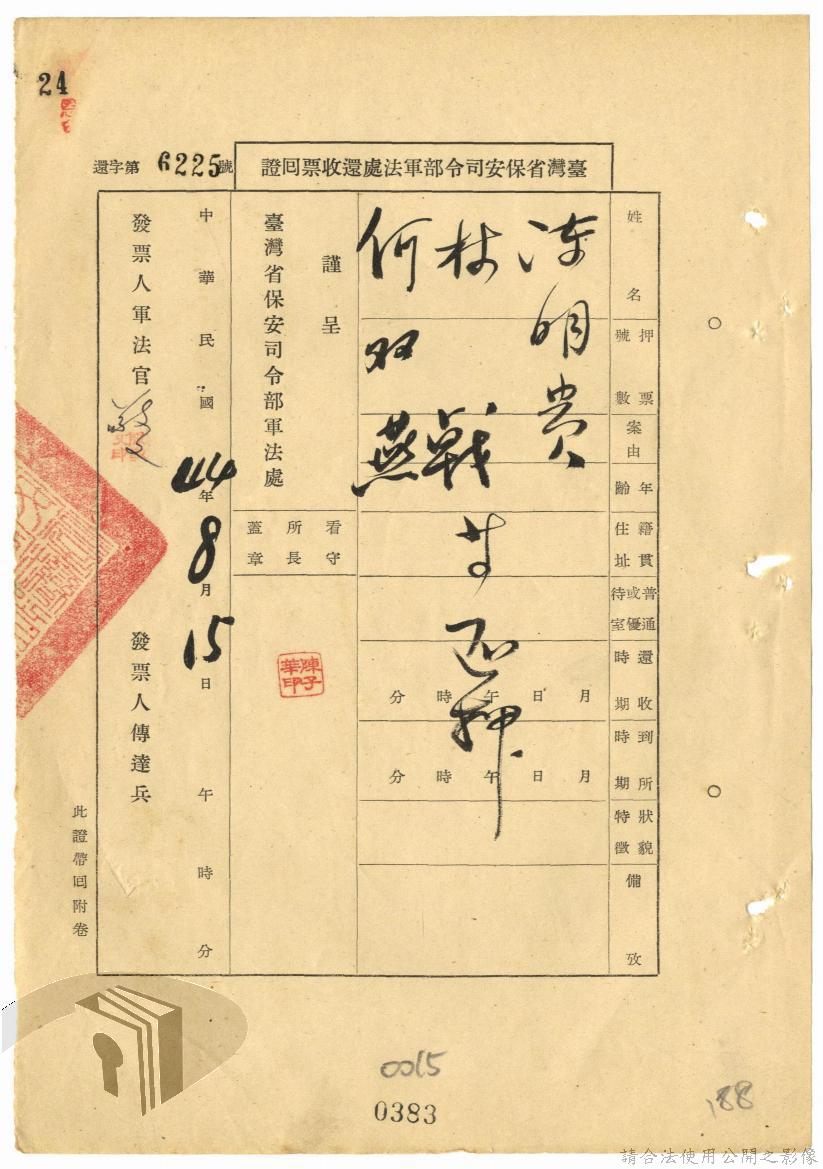 24
還字第6225號
臺灣省保安司令部軍法處還收票囘證
姓名
押票號數
案由
年齡
籍貫住址
普通或優待室
還收時期
到所時期
狀貌特徵
備攷
明貴
林
戰
还押
何双燕
月日午時分
月日午時分
謹呈
臺灣省保安司令部軍法處
看守所長蓋章
陳子華印
中華民國44年8月15日午時分
發票人軍法官
發票人傳達兵
此證帶囘附卷
0015
0383
188
請合法使用公開之影像